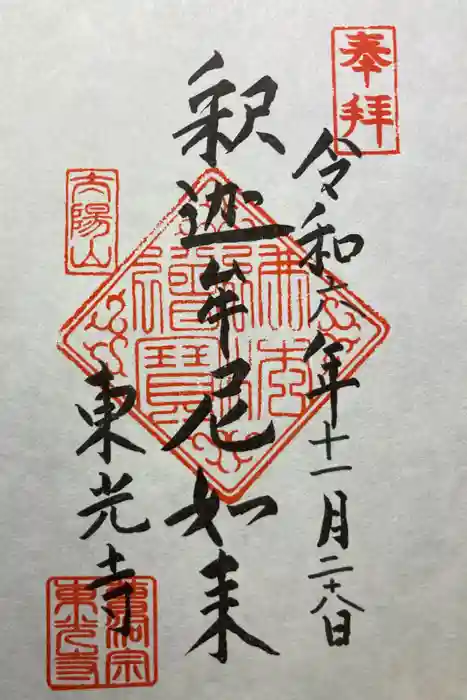 奉拝
令和六年十一月二十八日
釈迦牟尼如来
太陽山
東光寺
佛法僧寶
曹洞宗
東光寺